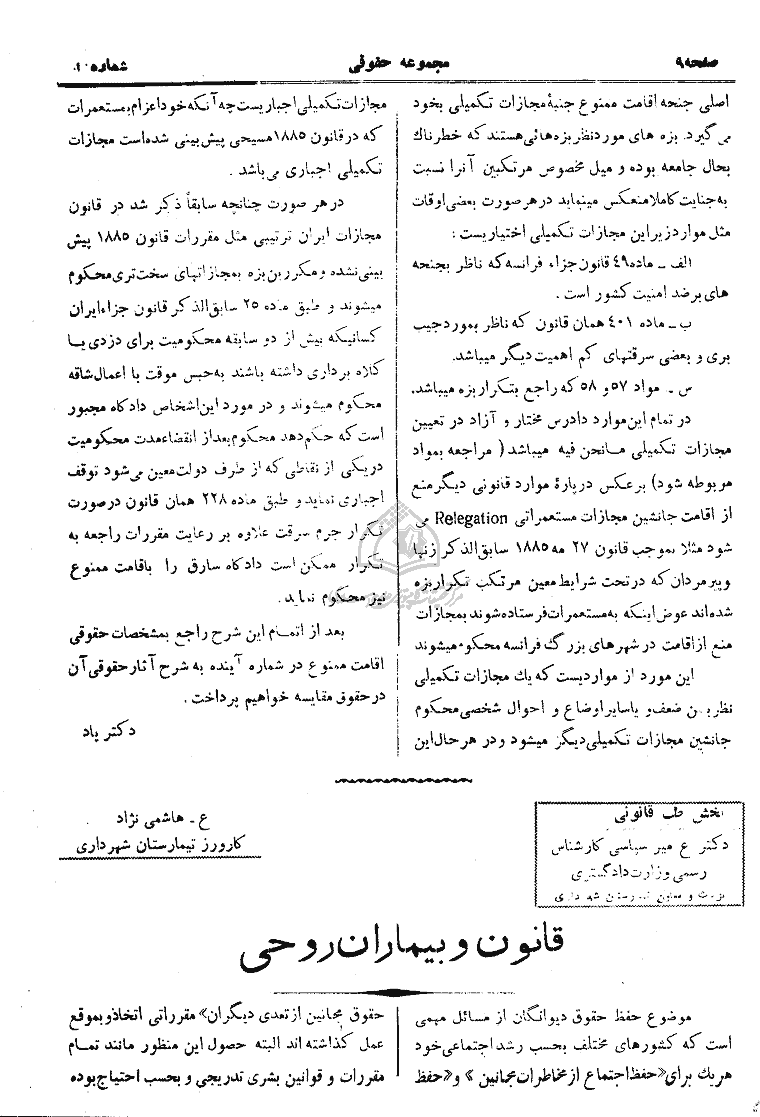 صفحه۹
مجموعه حقوقی
شماره ۱۰
اصلی جنحه اقامت ممنوع جنبۀ مجازات تکمیلی بخود
می گیرد. بزه های موردنظر بزه هائی هستند که خطرناك
بحال جامعه بوده و میل مخصوص مرتکبین آنرا نسبت
به جنایت کاملا منعکس مینماید در هر صورت بعضی اوقات
مثل موارد زیر این مجازات تکمیلی اختیاریست :
الف ـ ماده ۴۹ قانون جزاء فرانسه که ناظر بجنحه
های بر ضد امنیت کشور است .
ب ـ ماده ۴۰۱ همان قانون که ناظر بمورد جیب
بری و بعضی سرقتهای کم اهمیت دیگر میباشد.
س ـ مواد ۵۷ و ۵۸ که راجع بتکرار بزه میباشد.
در تمام این موارد دادرس مختار و آزاد در تعیین
مجازات تکمیلی مانحن فیه میباشد ( مراجعه بمواد
مربوطه شود) برعکس دربارۀ موارد قانونی دیگر منع
از اقامت جانشین مجازات مستعمراتی Relegation می
شود مثلا بموجب قانون ۲۷ مه ۱۸۸۵ سابق الذکر زنها
و پیرمردان که در تحت شرایط معین مرتکب تکرار بزه
شده اند عوض اینکه به مستعمرات فرستاده شوند بمجازات
منع از اقامت در شهر های بزرگ فرانسه محکوم میشوند
این مورد از مواردیست که یك مجازات تکمیلی
نظر بسن ضعف و یا سایر اوضاع و احوال شخصی محکوم
جانشین مجازات تکمیلی دیگر میشود و در هر حال این
مجازات تکمیلی اجباریست چه آنکه خود اعزام بمستعمرات
که در قانون ۱۸۸۵ مسیحی پیش بینی شده است مجازات
تکمیلی اجباری می باشد .
در هر صورت چنانچه سابقاً ذکر شد در قانون
مجازات ایران ترتیبی مثل مقررات قانون ۱۸۸۵ پیش
بینی نشده و مکررین بزه بمجازاتهای سخت تری محکوم
میشوند و طبق ماده ۲۵ سابق الذکر قانون جزاء ایران
کسانیکه بیش از دو سابقه محکومیت برای دزدی یا
کلاه برداری داشته باشند به حبس موقت با اعمال شاقه
محکوم میشوند و در مورد این اشخاص دادگاه مجبور
است که حکم دهد محکوم بعد از انقضاء مدت محکومیت
در یکی از نقاطی که از طرف دولت معین می شود توقف
اجباری نماید و طبق ماده ۲۲۸ همان قانون در صورت
تکرار جرم سرقت علاوه بر رعایت مقررات راجعه به
تکرار ممکن است دادگاه سارق را باقامت ممنوع
نیز محکوم نماید.
بعد از اتمام این شرح راجع بمشخصات حقوقی
اقامت ممنوع در شماره آینده به شرح آثار حقوقی آن
در حقوق مقایسه خواهیم پرداخت .
دکتر یاد
بخش طب قانونی
دکتر ع میر سپاسی کارشناس
رسمی وزارت دادگستری
و معاون تیمارستان شهرداری
ع ـ هاشمی نژاد
کارورز تیمارستان شهرداری
قانون و بیماران روحی
موضوع حفظ حقوق دیوانگان از مسائل مهمی
است که کشورهای مختلف بحسب رشد اجتماعی خود
هر یك برای «حفظ اجتماع از مخاطرات مجانین » و «حفظ
حقوق مجانین از تعدی دیگران» مقرراتی اتخاذ و بموقع
عمل گذاشته اند البته حصول این منظور مانند تمام
مقررات و قوانین بشری تدریجی و بحسب احتیاج بوده